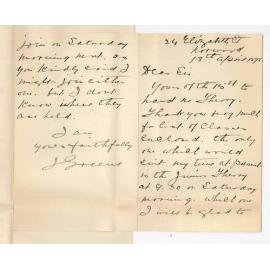 24 Elizabeth St
Norwood
18th April 1895
Dear Sir
Yours of the 15th to
hand re Theory.
Thank you very much
for list of Classes
enclosed. the only
one which would
suit my time at present
is the Junior Theory
at 9.30 on Saturday
morning. which one
I will be glad to
join on Saturday
morning next. as
you kindly said I
might join either
one. but I dont
know where they
are held.
I am
yours faithfully
J Greens